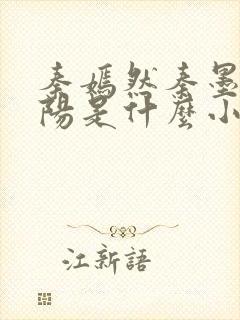 秦嫣然秦墨
陽是什麼小
江新語